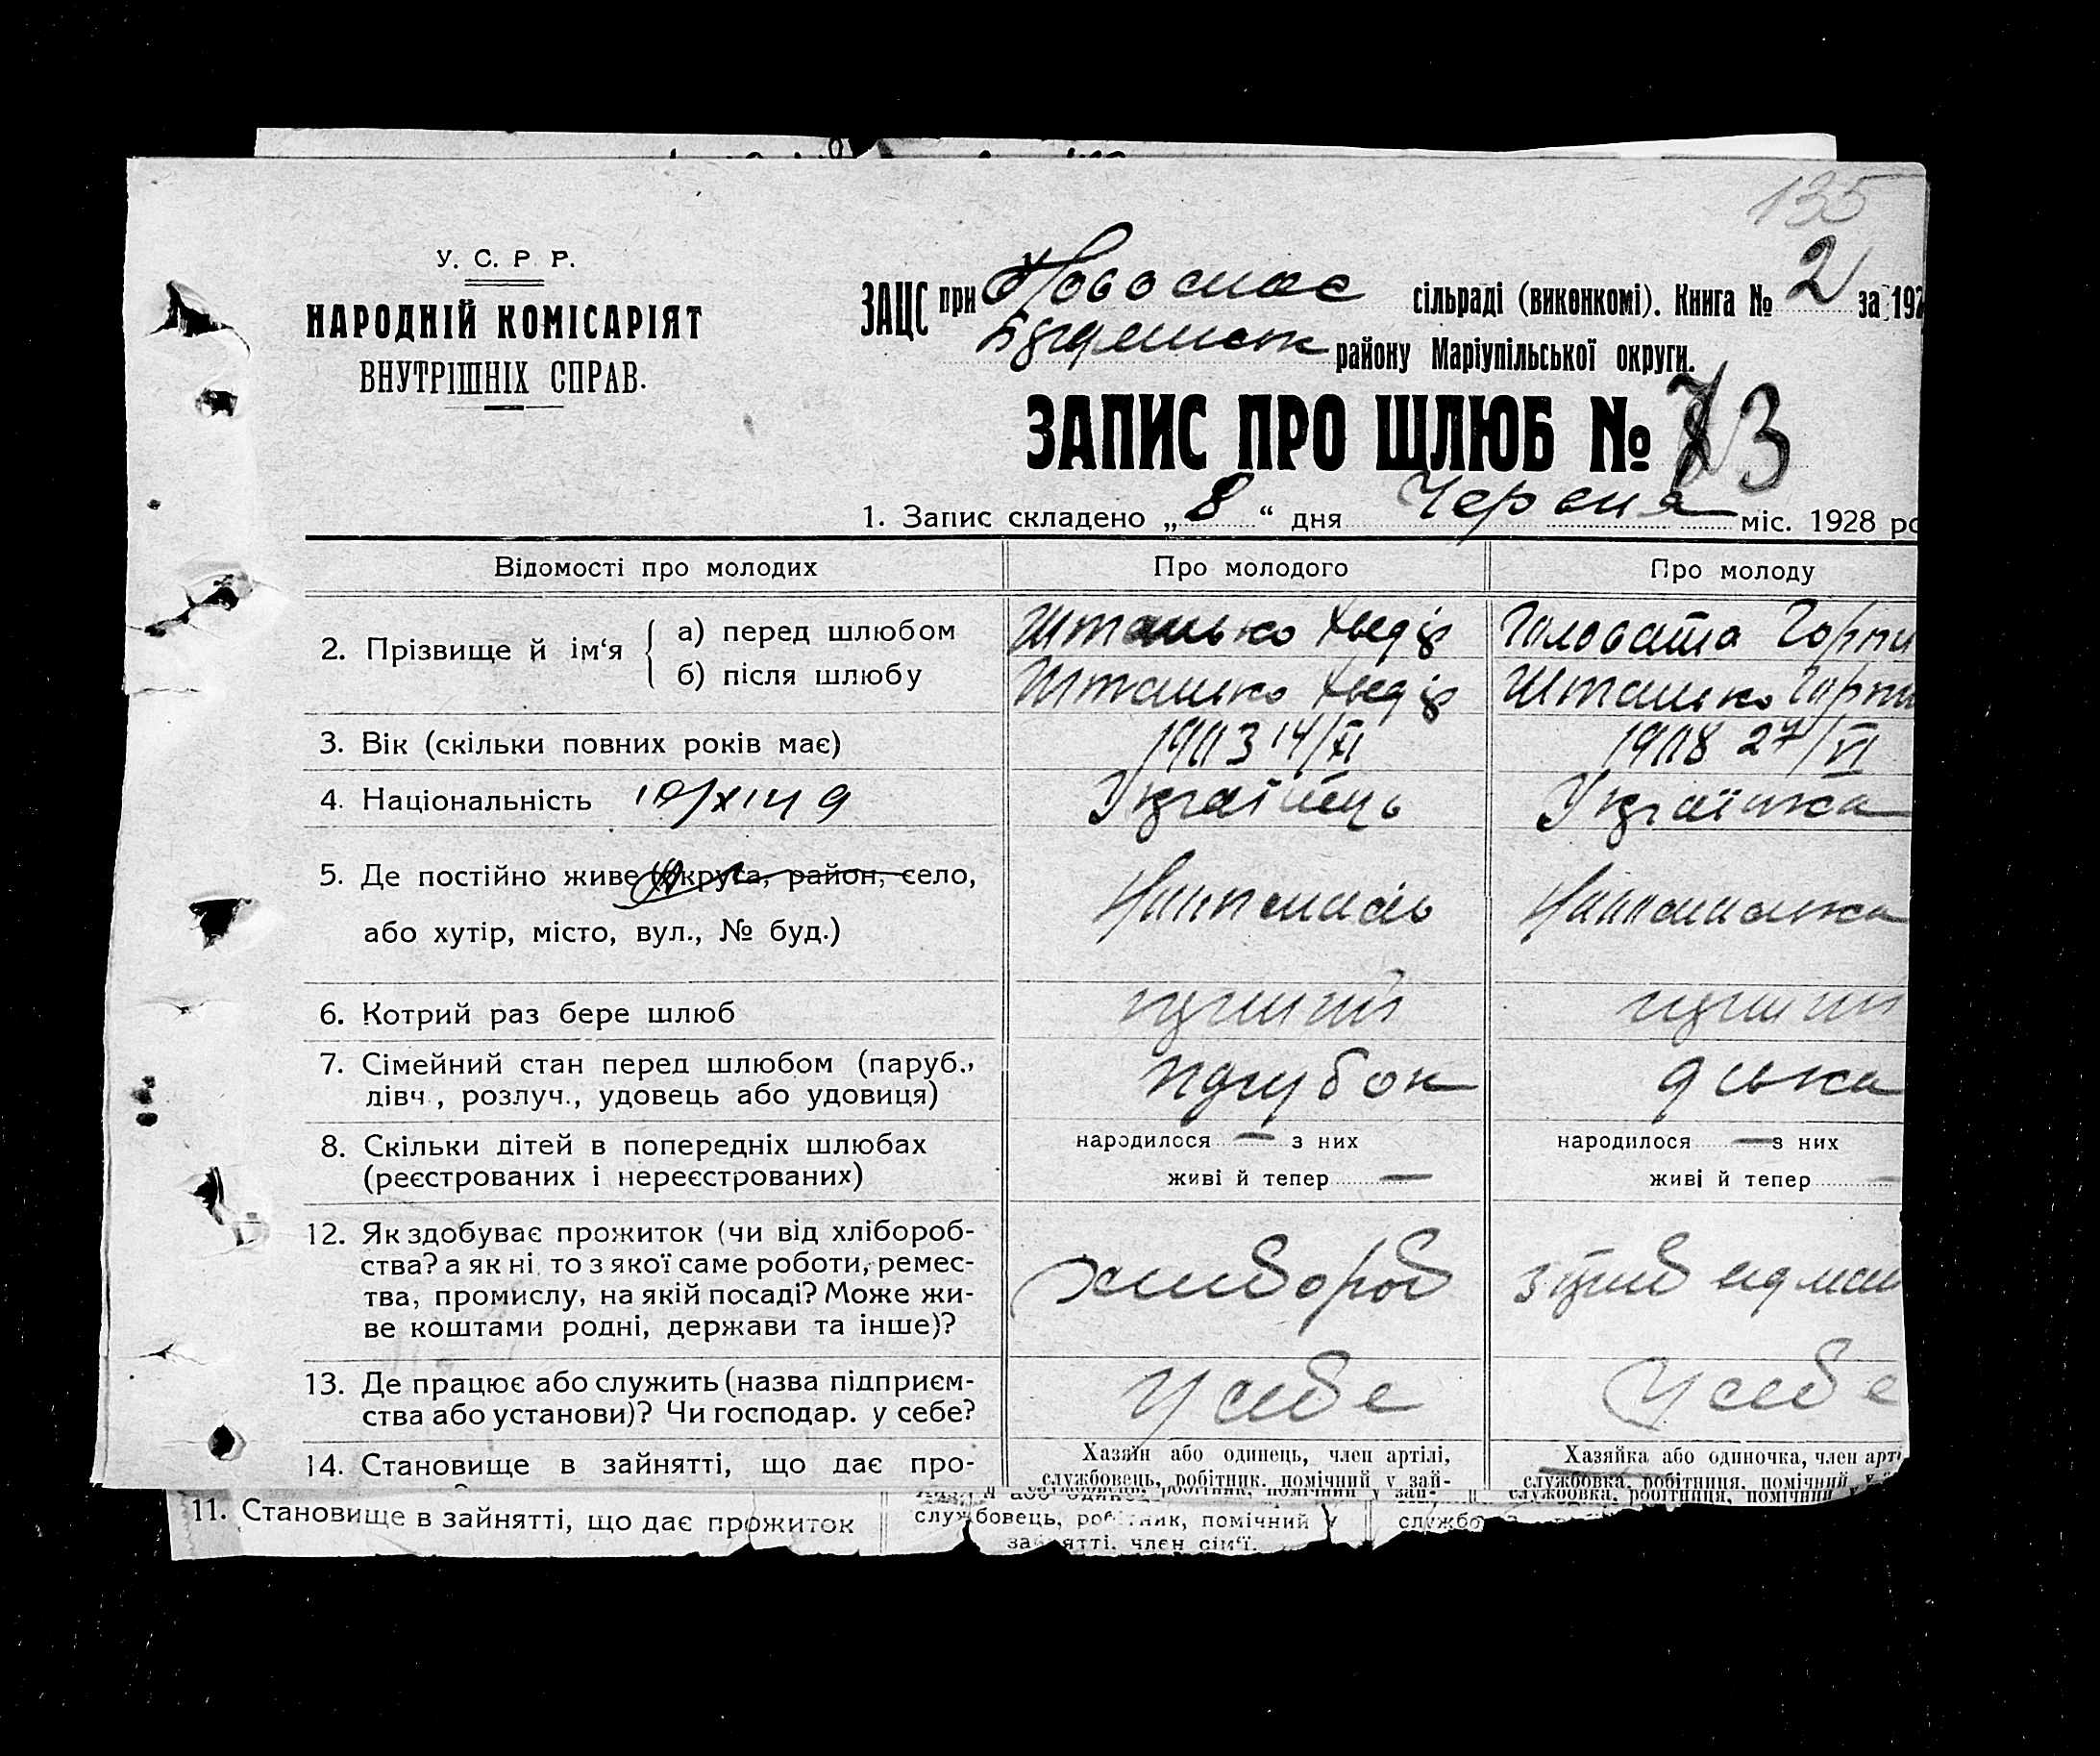 135
У. С. Р. Р.
НАРОДНІЙ КОМІСАРІЯТ
ВНУТРІШНІХ СПРАВ.
ЗАЦС при Новоспас сільраді (виконкомі). Книга № 2 за 192
району Маріупільської округи.
ЗАПИС ПРО ШЛЮБ № 73
1. Запис складено „ 8 “ дня Червня міс. 1928 ро
Відомості про молодих Про молодого Про молоду
2. Прізвище й ім‘я { а) перед шлюбом Штанько Хведір Головата Горпи
б) після шлюбу Штанько Хведір Штанько Горпи
3. Вік (скільки повних років має) 1903 14/XI 1908 27/VI
4. Національність Українець Українка
5. Де постійно живе (округа, район, село,
або хутір, місто, вул., № буд.)
6. Котрий раз бере шлюб перший перший
7. Сімейний стан перед шлюбом (паруб., дівч., розлуч., удовець або удовиця) парубок дівка
8. Скільки дітей в попередніх шлюбах народилося — з них народилося — з них
(реєстрованих і нереєстрованих) живі й тепер — живі й тепер —
12. Як здобуває прожиток (чи від хлібороб-
ства? а як ні, то з якої саме роботи, ремес- хлібороб
тва, промислу, на якій посаді? Може жи-
ве коштами родні, держави та інше)?
13. Де працює або служить (назва підприєм- у себе у себе
ства або установи)? Чи господар. у себе?
14. Становище в зайнятті, що дає про- Хазяїн або одинець, член артілі, Хазяйка або одиночка, член арт
службовець, робітник, помічний у зай- службовка, робітниця, помічний у
11. Становище в зайнятті, що дає прожиток службовець, робітник, помічний у
зайнятті, член сім‘ї.